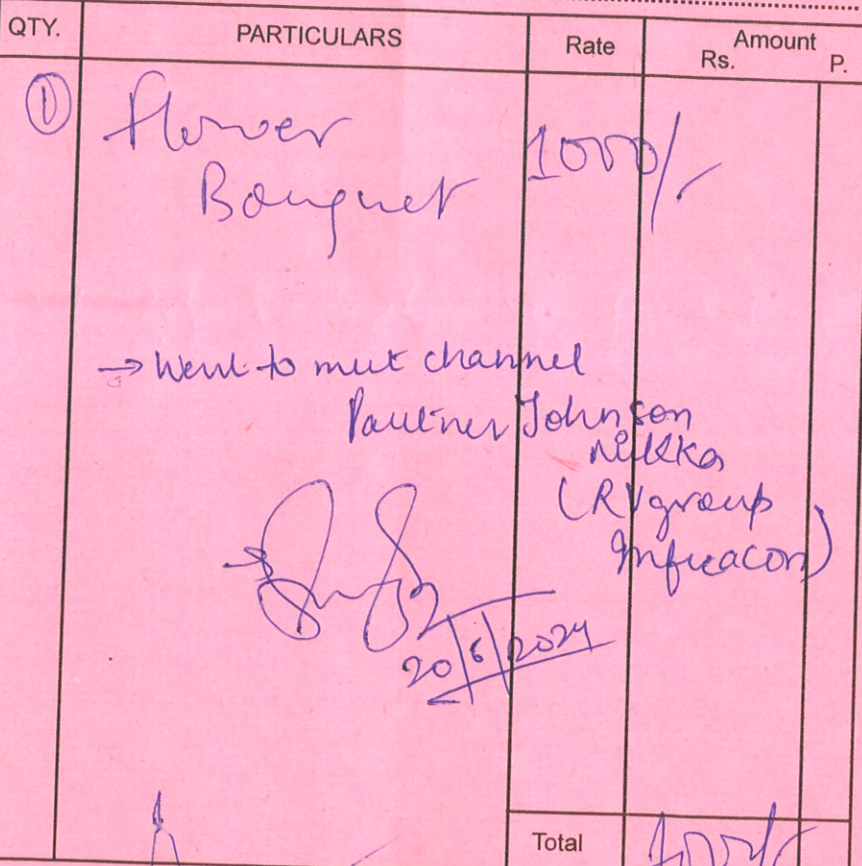 QTY. PARTICULARS Rate Amount
Rs. P.
① Flower 1000/-
Bouquet
→ Went to meet channel
Partner Johnson
(RV group
Infracon)
20/6/2024
Total 1000/-